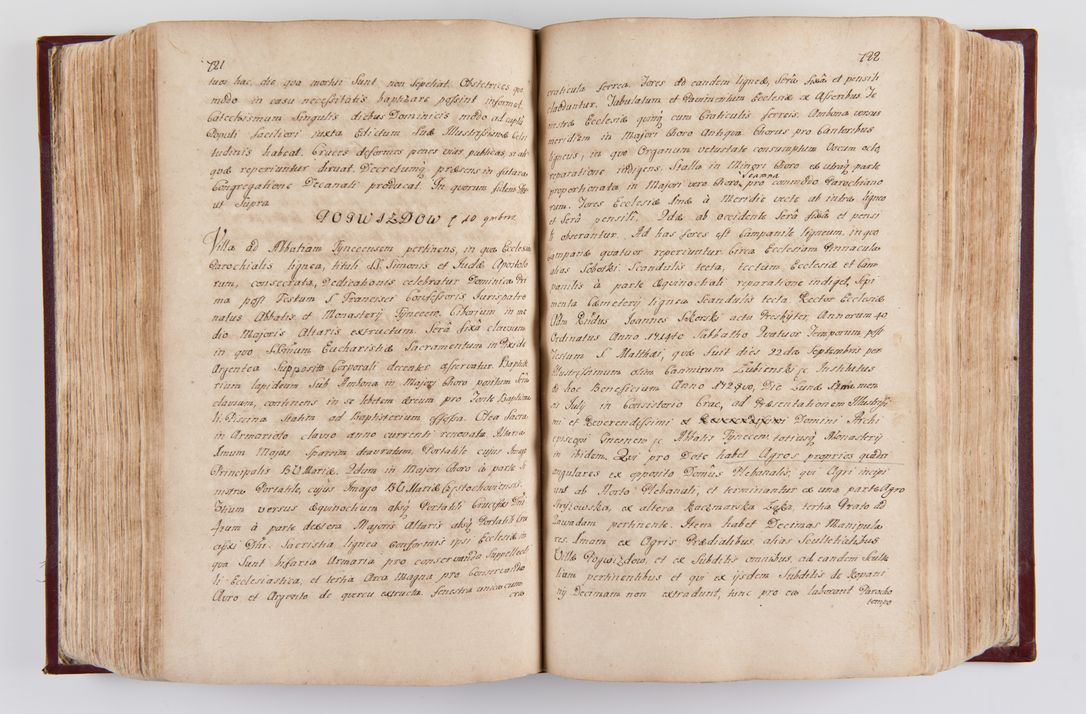 721
tuos hac, die qua mortui sunt non sepeliat. Obstetrices quo
modo in casu necessitatis baptizare possint informet.
Catechismum singulis diebus Dominicis modo ad captum
Populi faciliori iuxta Edictum Suæ Illustrissimæ Celsi
tudinis habeat. Cruces deformes penes vias publicas, si ali
quæ reperiuntur diruat. Decretumq præsens in futura
Congregatione Decanali producat. In quorum fidem
ut Supra
POGWIZDOW 10
Villa ad Abbatiam Tynecensem pertinens, in qua Ecclesia
Parochialis lignea, tituli SS. Simonis et Judæ Apostolo
rum, consecrata, Dedicationis celebratur Dominica Pri
ma post Festum S. Francisci Confessoris Jurispatro
natus Abbatis et Monasterij Tynecen. Ciborium in me
dio Majoris Altaris extructum. Serâ fixâ clausum
in quo SSmum Eucharistiæ Sacramentum in Pixide
Argentea Supposito Corporali decenter asservatur. Baptiste
rium lapideum sub Ambona in Majori Choro positum
clausum, continens in se lebetem æreum pro Fonte Baptisma
li. Piscina statim ad Baptisterium effossa. Olea Sacra
in Armariolo clauso anno currenti renovata. Altaria
Imum Majus sparsim deauratum, Portatile cujus Imago
Principalis BV Mariæ. 2dum in Majori Choro à parte si
nistra Portatile, cujus Imago BV Mariæ Częstochoviensis.
3tium versus æquinoctium absq Portatili Crucifixi Dni
4tum à parte dextera Majoris Altaris absq Portatili Cru
cifixi Dni. Sacristia lignea conformis ipsi Ecclesiæ in
qua sunt bifaria Armaria pro conservanda Suppellecti
li Ecclesiastica, et tertia Arca Magna pro Conservando
Auro et Argento de quercu extructa. fenestra unica cum
cra
722
craticula ferrea. Fores ad eandem ligneæ, Serâ fixâ et pensili
clauduntur. Tabulatum et Pavimentum Ecclesiæ ex Asseribus Fe
nestræ Ecclesiæ quinq cum Craticulis ferreis. Ambona versus
meridiem in Majori Choro Antiqua. Chorus pro Cantoribus
ligneus, in quo Organum vetustate consumptum Vocum octo,
reparatione indigens. Stalla in Minori Choro ex utraq parte
proportionata in Majori vero Choro Scamna pro commodo Parochiano
rum. Fores Ecclesiæ Imæ à Meridie vecte ab intra ligneo
et Serâ pensili. 2dæ ab occidente Serâ fixâ et pensi
li obserantur. Ad has fores est Campanile ligneum, in quo
Campanæ quatuor reperiuntur. Circa Ecclesiam Pinnacula
alias Sobotki Scandulis tecta, tectum, Ecclesiæ et Cam
panilis à parte Æquinoctiali reparatione indiget, Sepi
menta Cæmeterij lignea Scandulis tecta. Rector Ecclesiæ
Adm. Rndus Joannes Sikorski acta Presbyter, Annorum 40
Ordinatus Anno 1714to Sabbatho Quatuor Temporum post
Festum S. Matthæi, quæ fuit dies 22da Septembris per
Illustrissimum olim Casimirum Łubienski &c Institutus
ad hoc Beneficium Anno 1728vo, Die Lunæ 5ta men
sis Julij in Consistorio Crac, ad Præsentationem Illustrissi
mi et Reverendissimi Domini Archi
episcopi Gnesnen &c Abbatis Tynecen totiusq Monasterij
in ibidem. Qui pro Dote habet Agros proprios quadri
angulares ex opposito Domûs Plebanalis, qui Agri incipi
unt ab Horto Plebanali, et terminantur ex una parte Agro
Stryszowska, ex altera Kaczmarska Łąka, tertia Prato ad
Zawadam pertinente. Item habet Decimas Manipula
res. Imam ex Agris Prædialibus alias Scultetialibus
Villæ Pogwizdow, et ex Subditis omnibus, ad eandem Sculte
tiam pertinentibus et qui ex ijsdem Subditis de Kopani
nij Decimam non extradunt, tunc pro ea laborant Parocho
tempo